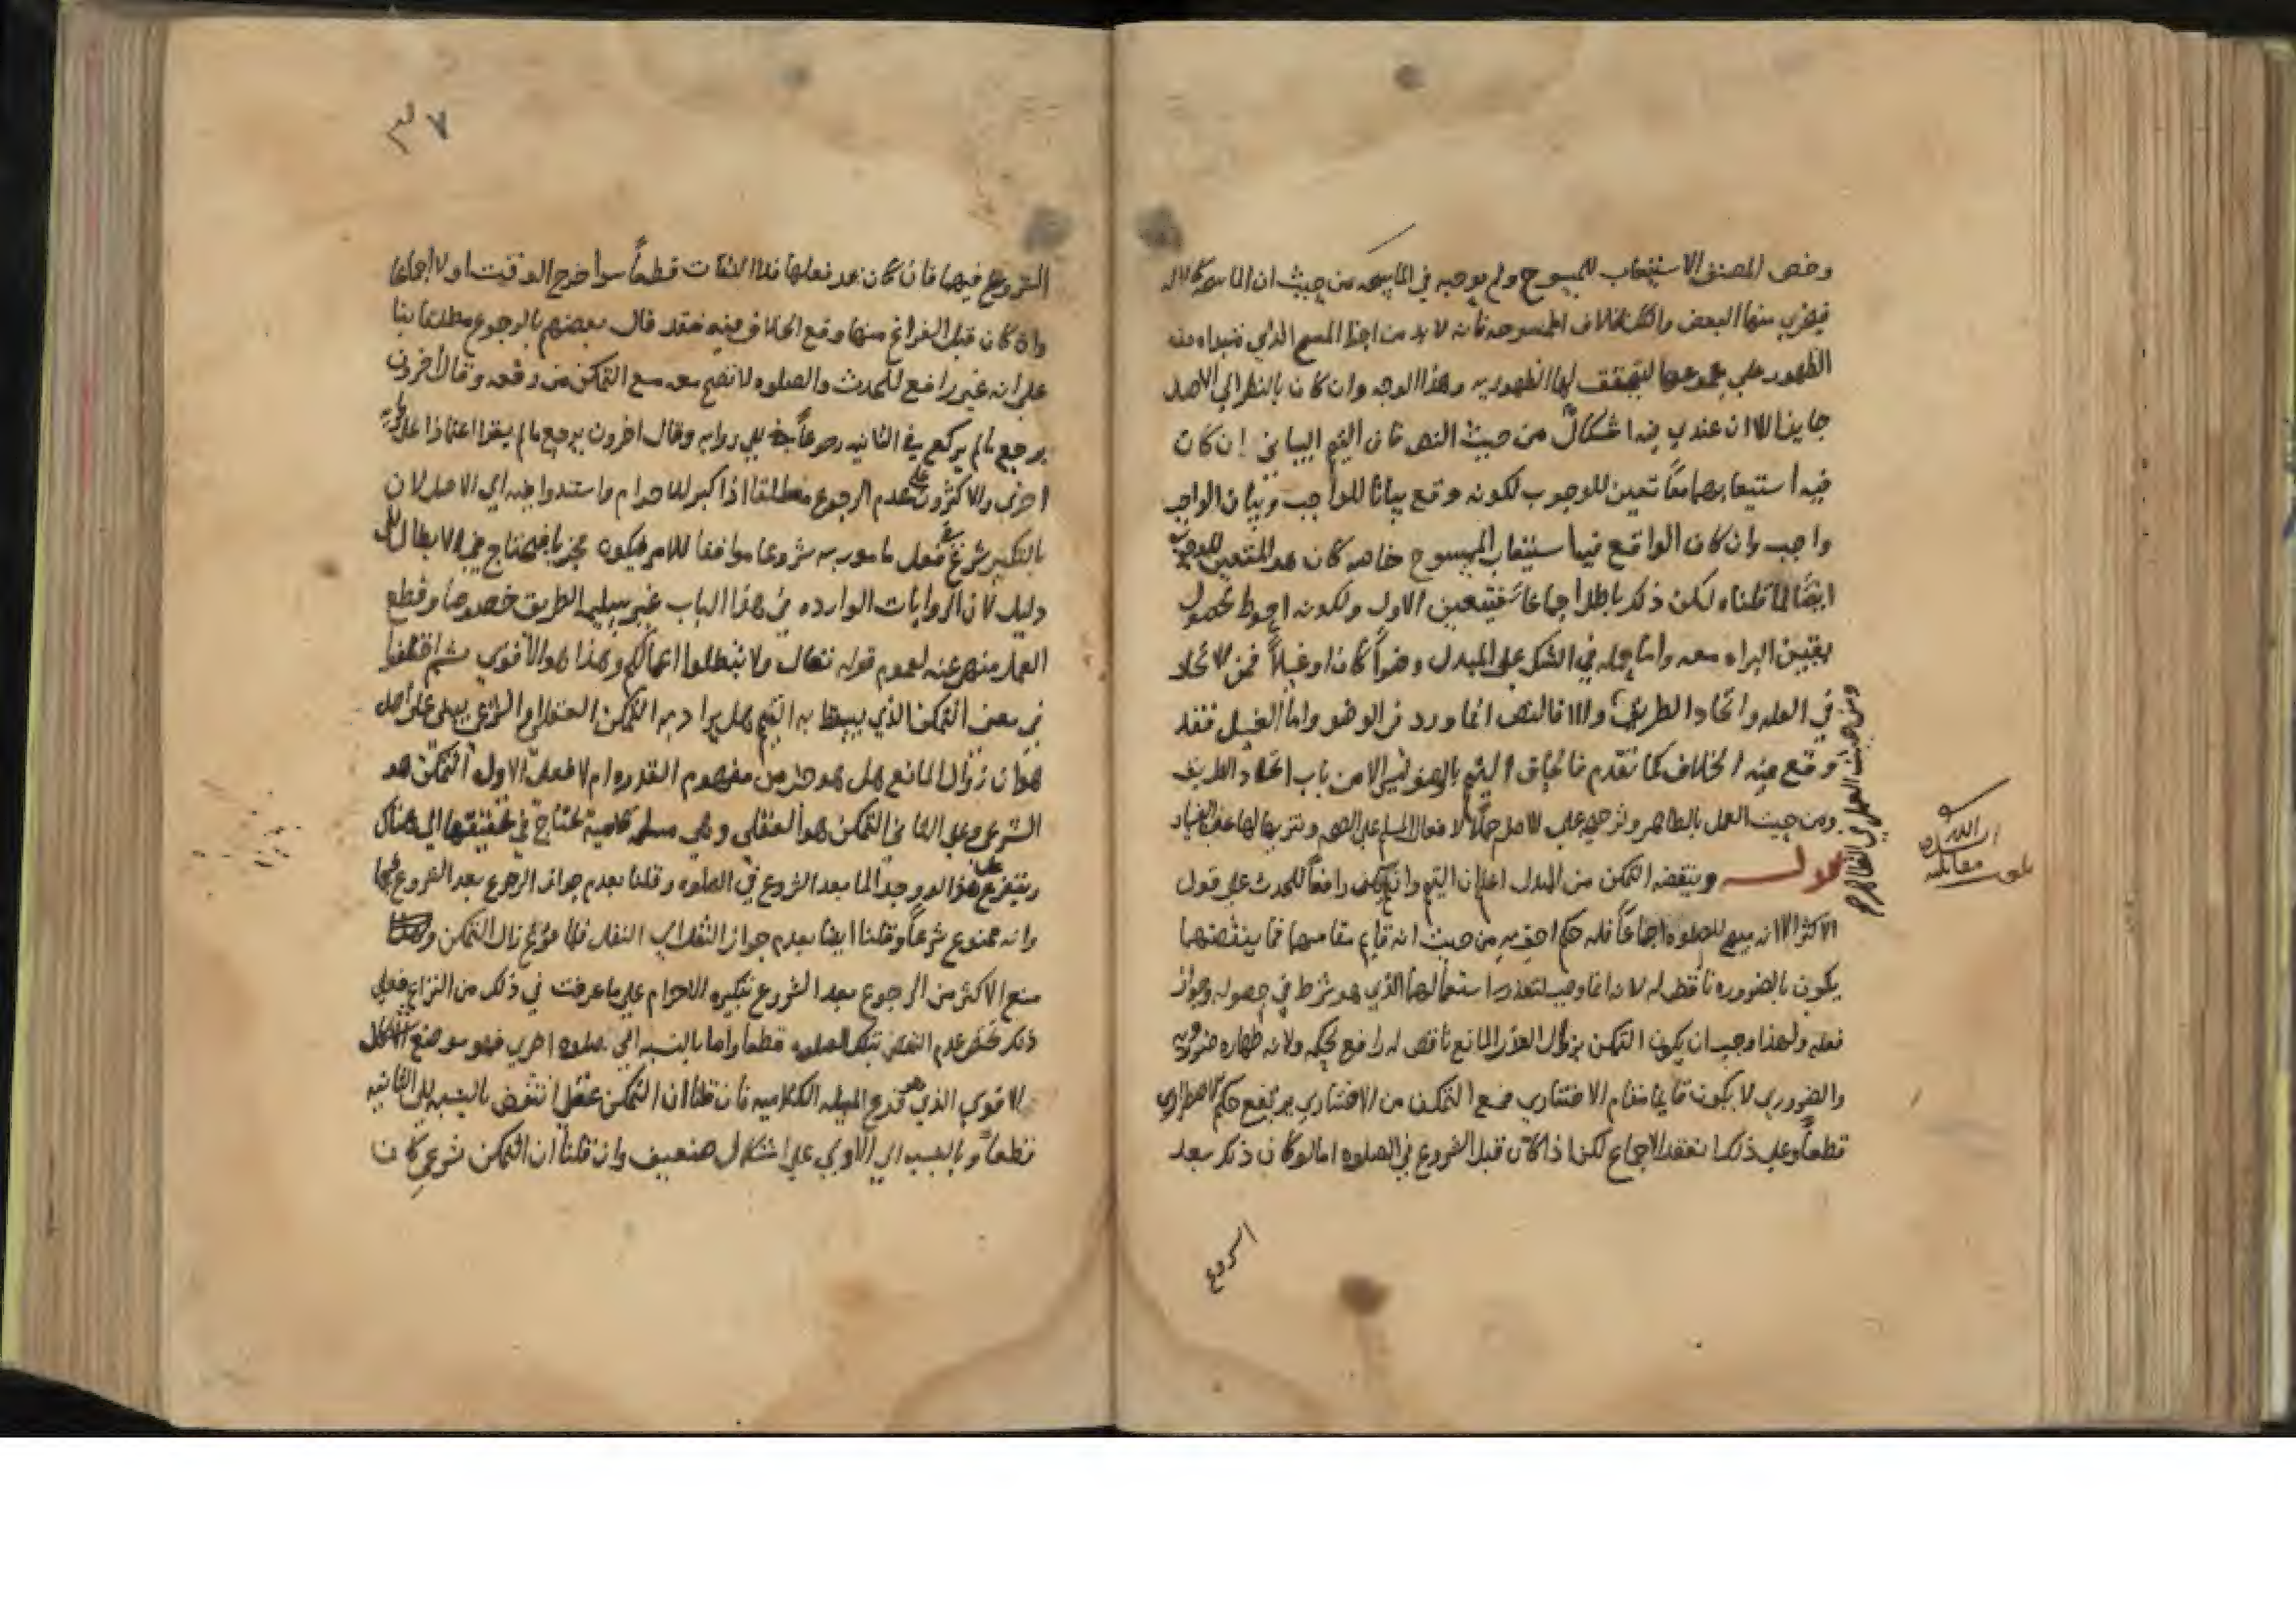 وخص المصنف الاستيعاب للمسوح ولم يوجبه في الماسحه من حيث ان الماسحه كالاله
فيجزي منها البعض بخلاف الممسوحه فانه لا بد من
الظهور علي مجموعها ليتحقق لها الطهوريه وهذا الوجه وان كان بالنظر الي الاصل
جايز الا ان عندي فيه اشكال من حيث النص فان التيمم البياني ان كان
فيه استيعابهما معا تعين للوجوب لكونه وقع بيانا للواجب وبيان الواجب
واجب وان كان الواقع فيه استيعاب الممسوح خاصه كان هو المتعين للوجوب
ايضا لما قلناه لكن ذلك باطل اجماعا فيتعين الاول ولكونه احوط لحصول
يقين البراه معه واما حمله في الشك علي المبدل وضوا كان او غسلا فمن الاتحاد
في العله واتحاد الطريق والا فالنص انما ورد في الوضو واما الغسل فقد
وقع فيه الخلاف كما تقدم فالحاق التيمم بالوضو ليس الا من باب اتحاد الطريق
ومن حيث العمل بالظاهر وترجيحه علي الاصل حملا لافعال المسلم علي الصحه وتنزيها لها عن الفساد
قوله وينقضه التمكن من المبدل اعلم ان التيمم وان لم يكن رافعا للحدث علي قول
الاكثر الا انه مبيح للصلوه اجماعا فله حكم احديهما من حيث انه قايم مقامهما فما ينقضهما
يكون بالضروره ناقض له لانه انما وجب لتعذر استعمالهما الذي هو شرط في حصوله وجواز
فعله ولهذا وجب ان يكون التمكن بزوال العذر المانع ناقض له رافع لحكمه ولانه طهاره ضروريه
والضروري لا يكون قايما مقام الاختياري فمع التمكن من الاختياري يرتفع حكم الاضطراري
قطعا وعلي ذلك انعقد الاجماع لكن اذا كان قبل الشروع في الصلوه اما لو كان ذلك بعد
الشروع
ومن حيث العمل بالظاهر
بلغت مقابله
٣٧
الشروع فيها فان كان بعد فعلها فلا التفات قطعا سوا خرج الوقت او لا اجماعا
وان كان قبل الفراغ منها وقع الخلاف فيه فقد قال بعضهم بالرجوع مطلقا بنا
علي انه غير رافع للحدث والصلوه لا تصح معه مع التمكن من رفعه وقال اخرون
يرجع ما لم يركع في الثانيه رجوعا الي روايه وقال اخرون يرجع ما لم يقرا اعتمادا علي
اخري والاكثرون علي عدم الرجوع مطلقا اذا كبر للاحرام واستندوا فيه الي الاصل لان
بالتكبير شرع في فعل مامور به شروعا موافقا للامر فيكون مجزيا فيحتاج في الابطال الي
دليل لان الروايات الوارده في هذا الباب غير سليمه الطريق خصوصا وقطع
العمل منهي عنه لعموم قوله تعالي ولا تبطلوا اعمالكم وهذا هو الاقوي ثم اختلفوا
في معني التمكن الذي يبطل به التيمم هل يراد به التمكن العقلي او الشرعي يبني علي اصل
هو ان زوال المانع هل هو جز من مفهوم القدره ام لا فعلي الاول التمكن هو
الشرعي وعلي الثاني التمكن هو العقلي وهي مسله كلاميه تحتاج في تحقيقها الي هناك
ويتفرع علي هذا لو وجد الما بعد الشروع في الصلوه وقلنا بعدم جواز الرجوع بعد الشروع فيها
وانه ممنوع شرعا وقلنا ايضا بعدم جواز النقل الي النفل فلما فرغ زال التمكن
منع الاكثر من الرجوع بعد الشروع بتكبيره الاحرام علي ما عرفت في ذلك من النزاع فعلي
ذلك تحقق عدم النقض بتلك الصلوه قطعا واما بالنسبه الي صلوه اخري فهو موضع اشكال
الاقوي الذي هو فرع المسله الكلاميه فان قلنا ان التمكن عقلي انتقض بالنسبه الي الثانيه
قطعا وبالنسبه الي الاولي علي اشكال ضعيف وان قلنا ان التمكن شرعي كان